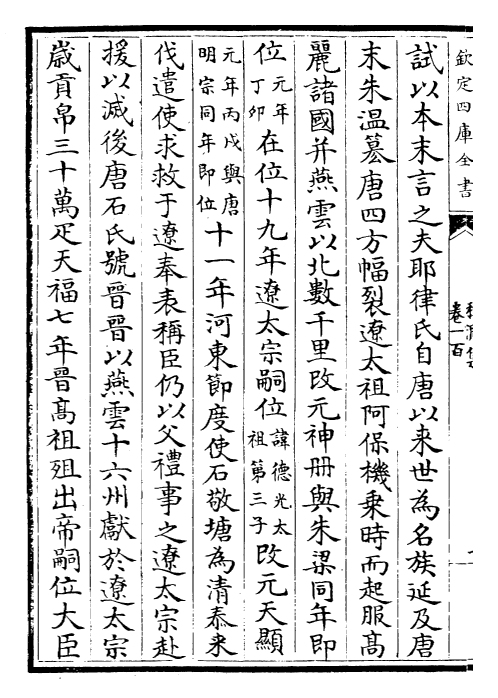 欽定四庫全書
卷一百
試以本末言之夫耶律氏自唐以来世為名族延及唐
末朱温簒唐四方幅裂遼太祖阿保機乗時而起服髙
麗諸國并燕雲以北數千里改元神册與朱梁同年即
位元年丁卯在位十九年遼太宗嗣位諱德光太祖第三子改元天顯
元年丙戌與唐明宗同年即位十一年河東節度使石敬塘為清泰来
伐遣使求救于遼奉表稱臣仍以父禮事之遼太宗赴
援以滅後唐石氏號晉晉以燕雲十六州獻於遼太宗
歲貢帛三十萬疋天福七年晉髙祖殂出帝嗣位大臣